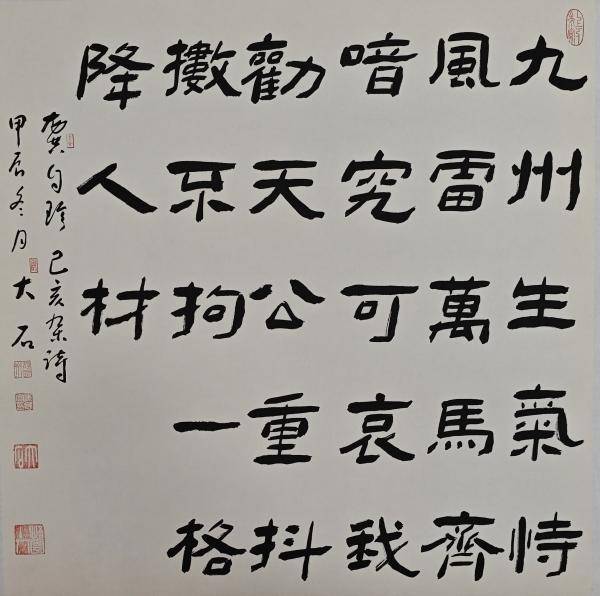 九州生氣恃
風雷萬馬齊
喑究可哀我
勸天公重抖
擻不拘一格
降人材
龔自珍己亥雜詩
甲辰冬月大石